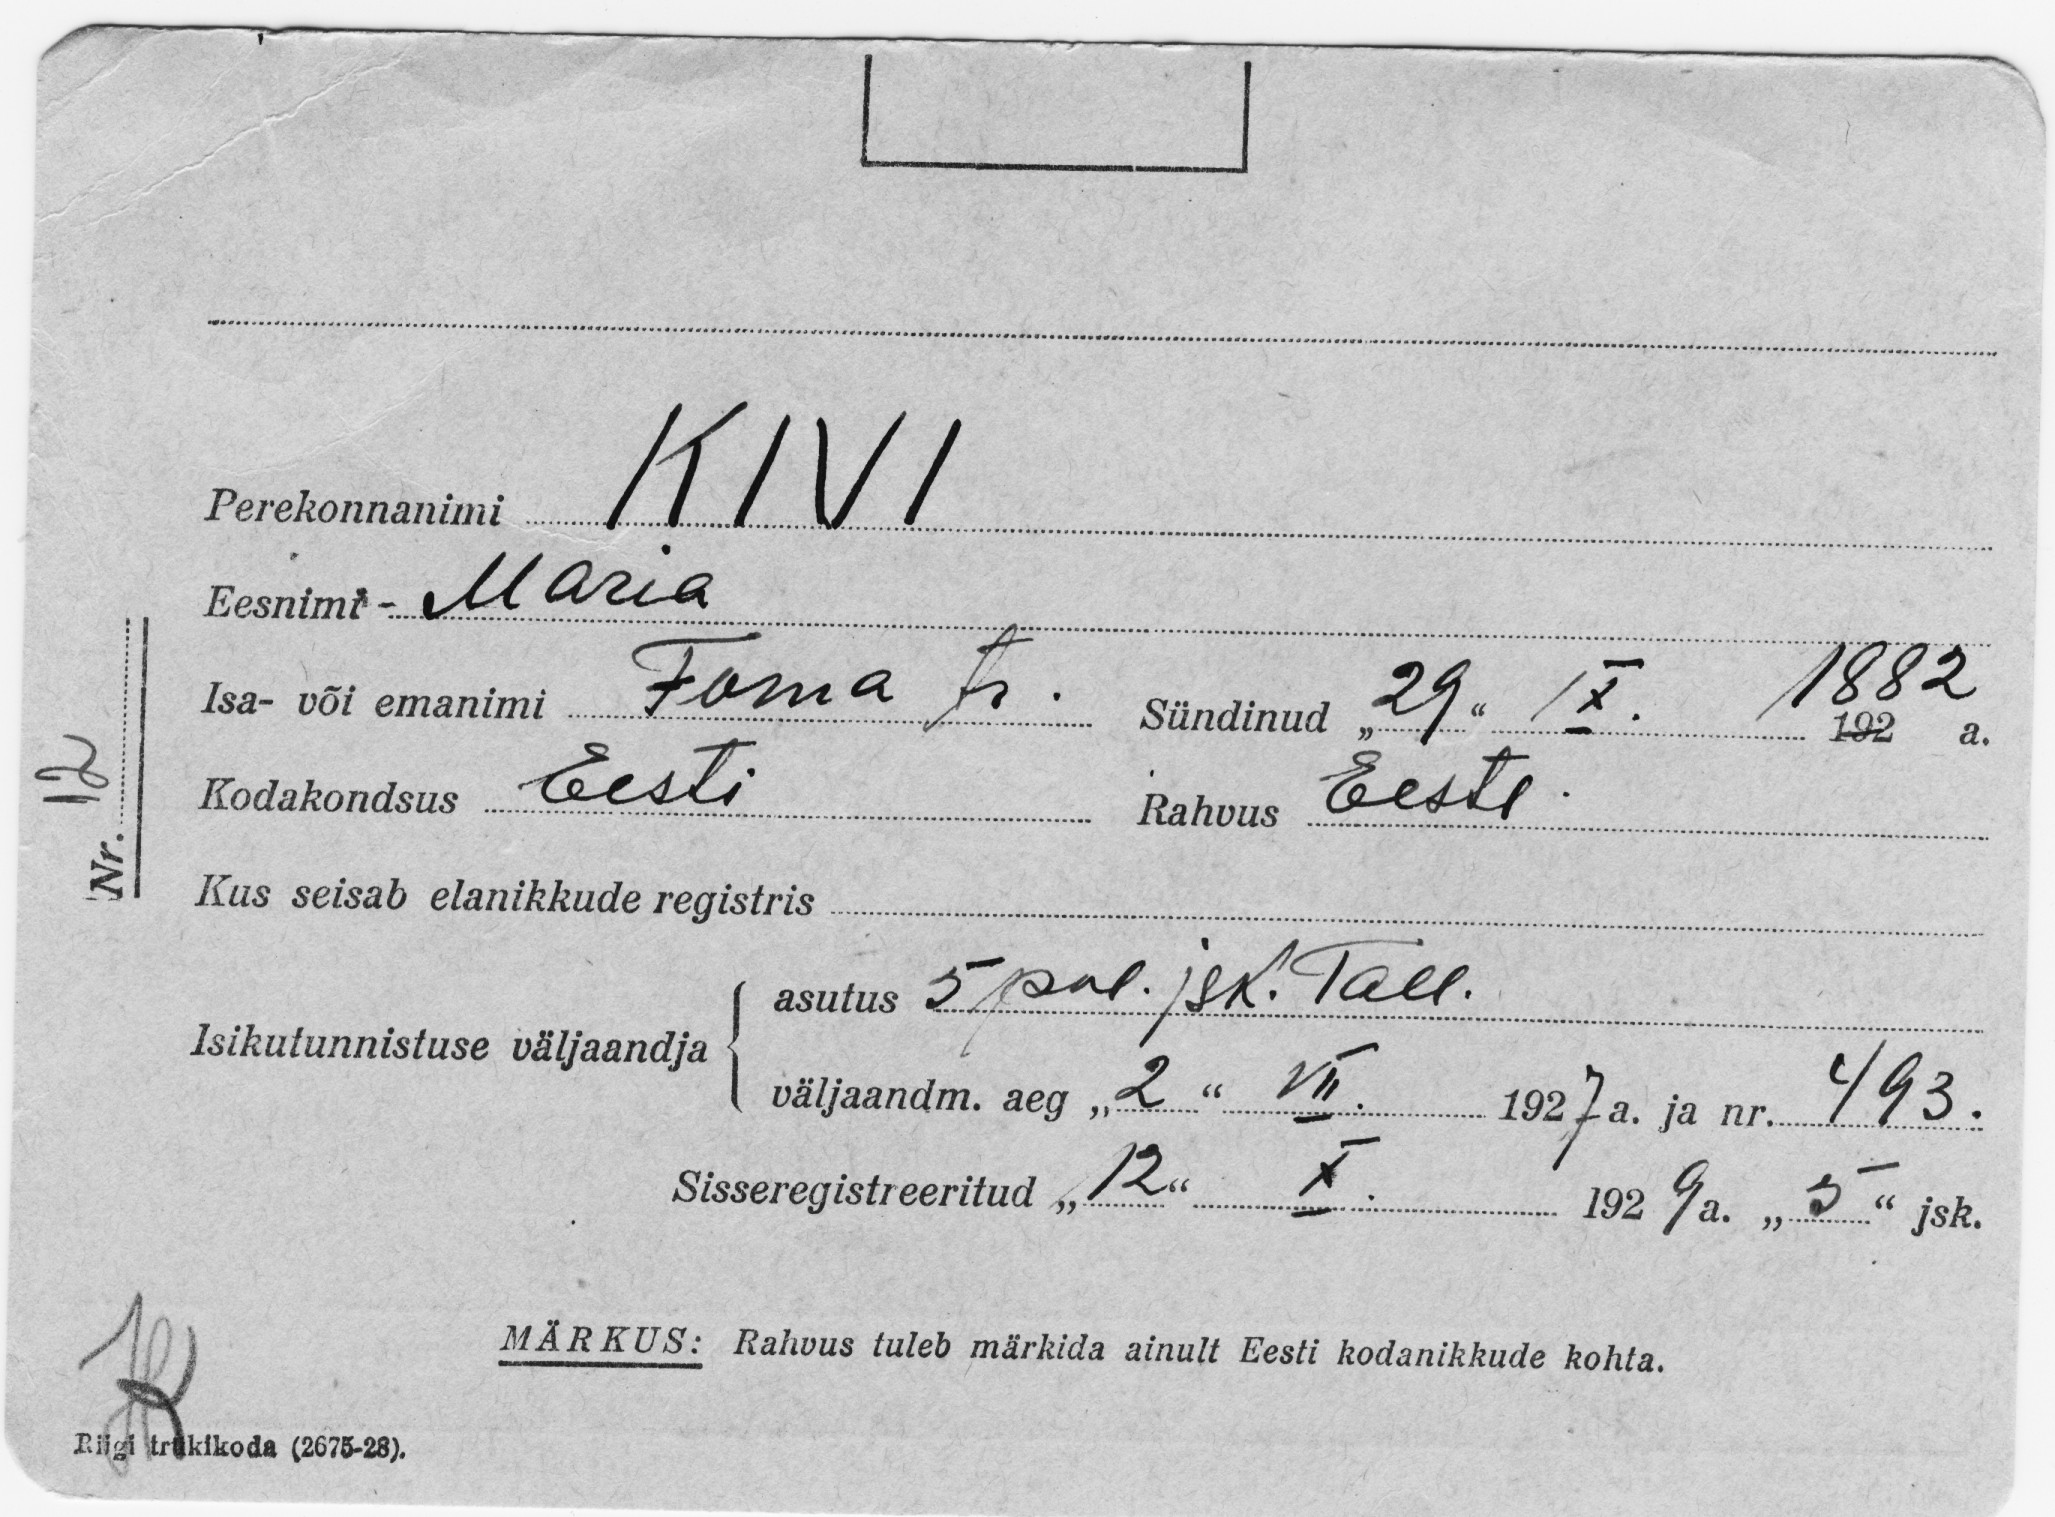 Perekonnanimi KIVI
Eesnimi - Maria
Isa- või emanimi Foma tr. Sündinud „29“ IX. 1882 192 a.
Kodakondsus Eesti Rahvus Eesti.
Kus seisab elanikkude registris
Isikutunnistuse väljaandja
asutus 5 pol. jsk. Tall.
väljaandm. aeg „2“ VII. 1927 a. ja nr. 493.
Sisseregistreeritud „12“ X. 1929 a. „5“ jsk.
Nr. 12
MÄRKUS: Rahvus tuleb märkida ainult Eesti kodanikkude kohta.
Riigi trükikoda (2675-28).